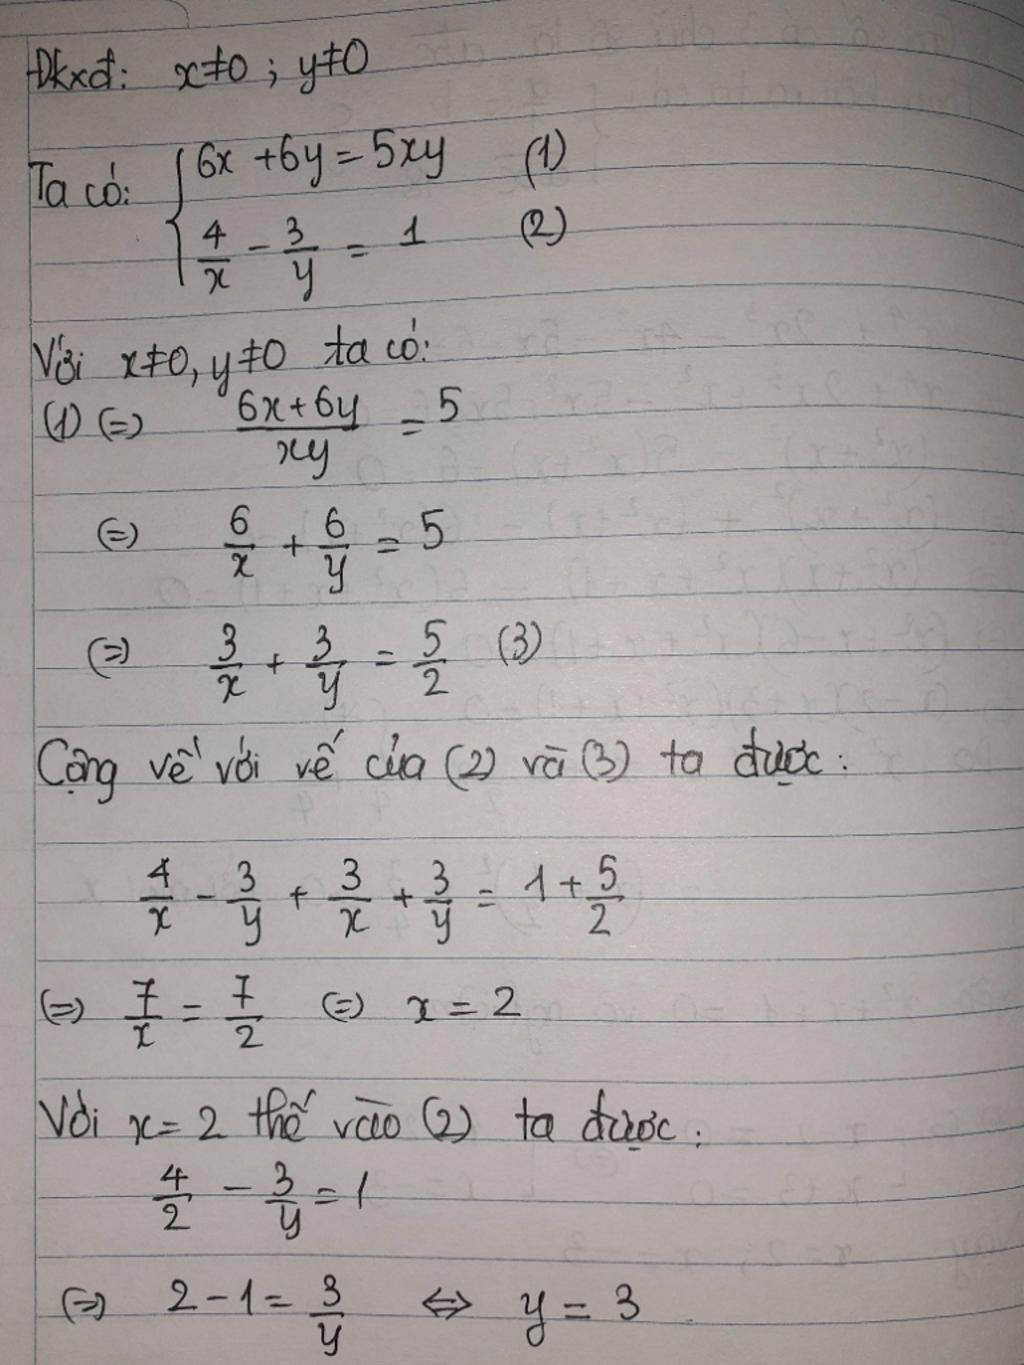 Đkxđ: x≠0 ; y≠0
Ta có: { 6x + 6y = 5xy (1)
4/x - 3/y = 1 (2)
Với x≠0, y≠0 ta có:
(1) (=) (6x+6y)/xy = 5
(=) 6/x + 6/y = 5
(=) 3/x + 3/y = 5/2 (3)
Cộng vế với vế của (2) và (3) ta được:
4/x - 3/y + 3/x + 3/y = 1 + 5/2
(=) 7/x = 7/2 (=) x = 2
Với x = 2 thế vào (2) ta được:
4/2 - 3/y = 1
(=) 2 - 1 = 3/y ⇔ y = 3